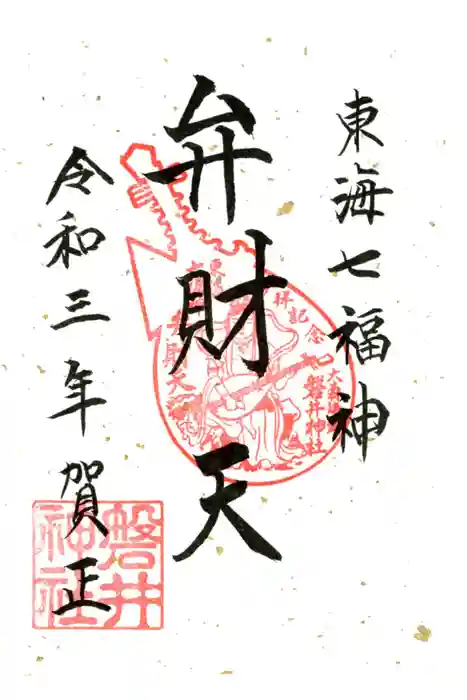 東海七福神
弁財天
令和三年賀正
拝記念
磐井神社
磐井神社